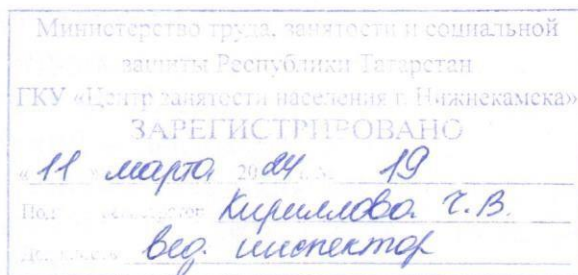 Министерство труда, занятости и социальной
защиты Республики Татарстан
ГКУ «Центр занятости населения г. Нижнекамска»
ЗАРЕГИСТРИРОВАНО
«11» марта 2024 г. № 19
Кириллова Г.В.
вед. инспектор